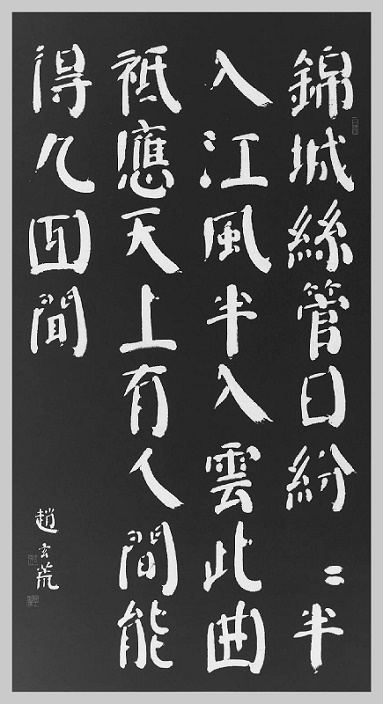 錦城絲管日紛〻半
入江風半入雲此曲
祗應天上有人間能
得几囬聞
趙玄荒